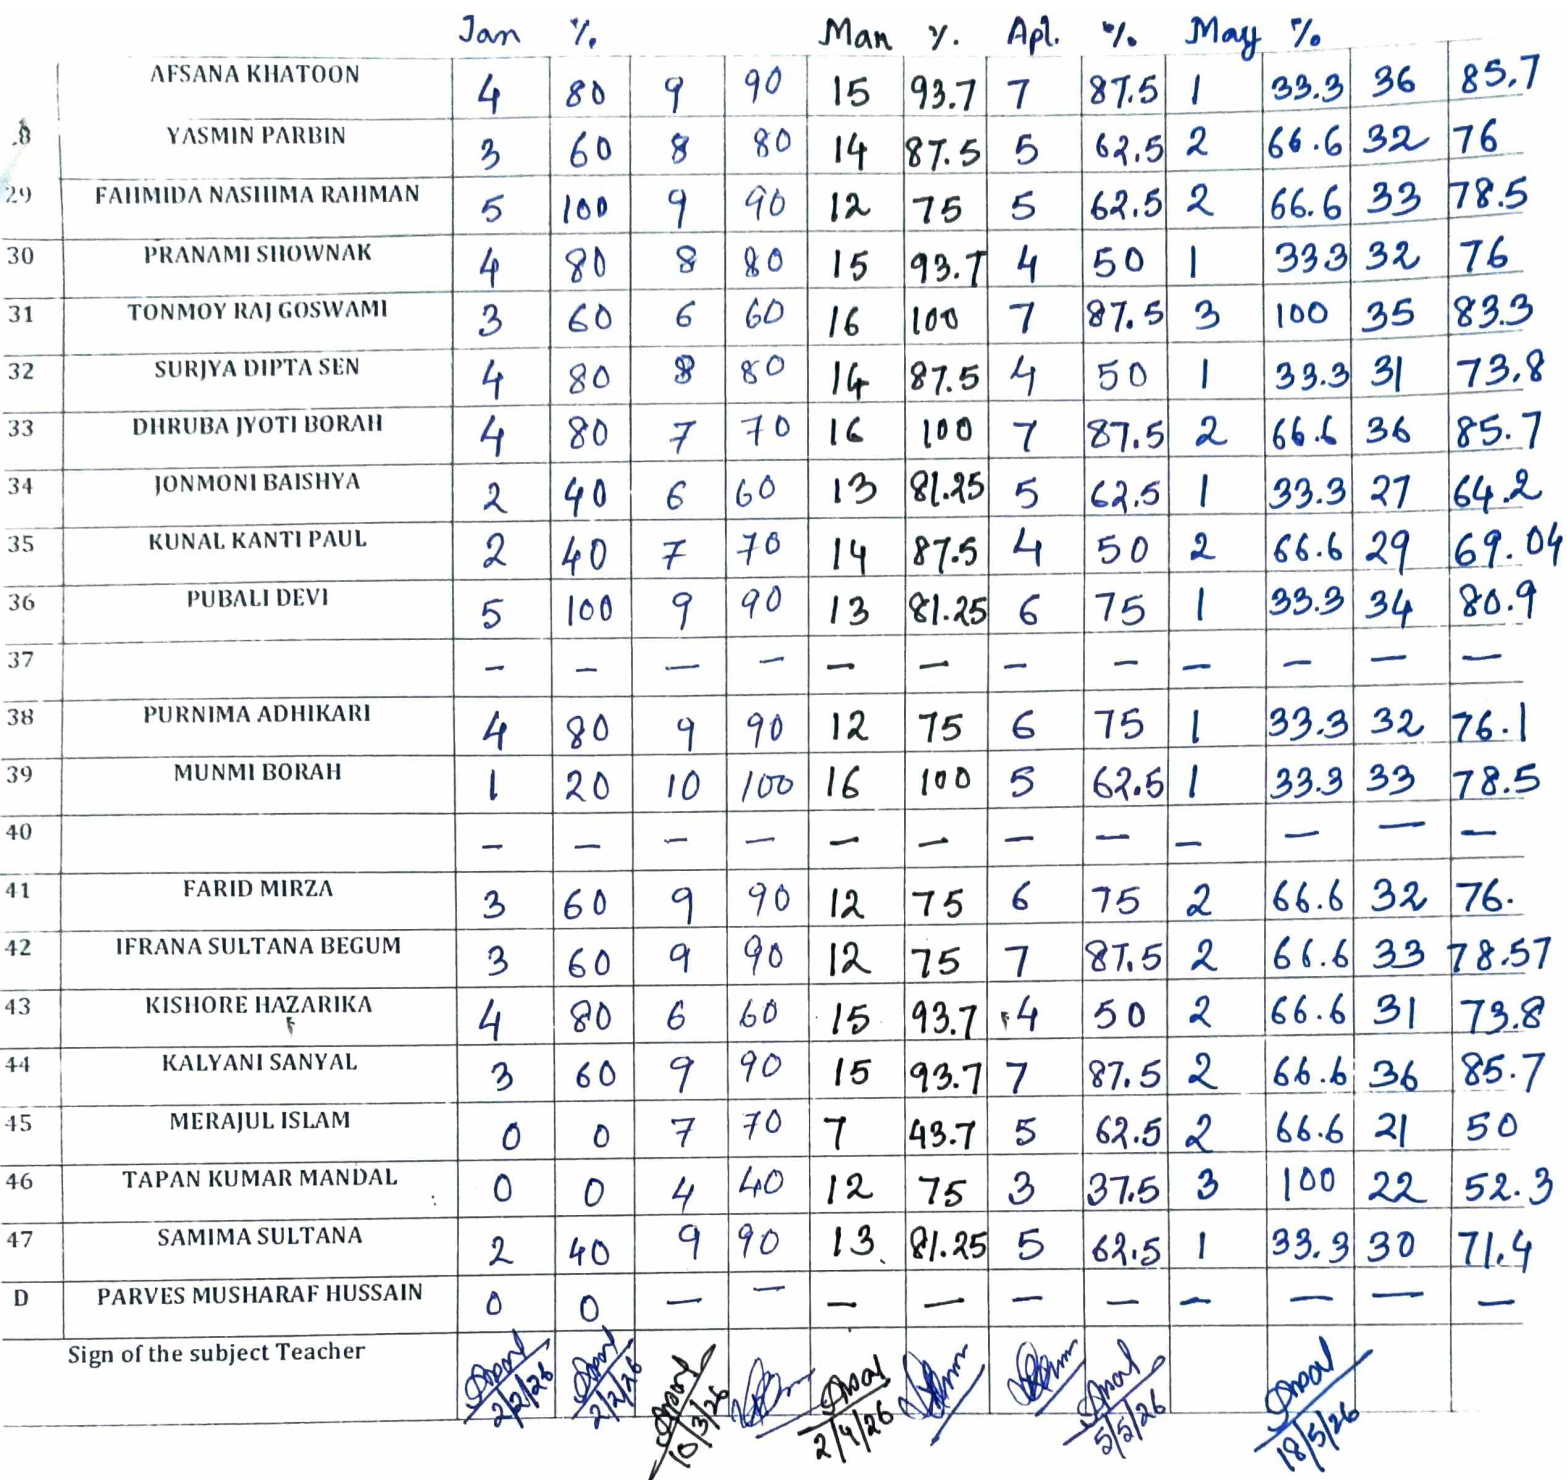 Jan % Mar %. Apl. % May %
AFSANA KHATOON 4 80 9 90 15 93.7 7 87.5 1 33.3 36 85.7
8 YASMIN PARBIN 3 60 8 80 14 87.5 5 62.5 2 66.6 32 76
29 FAHMIDA NASHIMA RAHMAN 5 100 9 90 12 75 5 62.5 2 66.6 33 78.5
30 PRANAMI SHOWNAK 4 80 8 80 15 93.7 4 50 1 33.3 32 76
31 TONMOY RAJ GOSWAMI 3 60 6 60 16 100 7 87.5 3 100 35 83.3
32 SURJYA DIPTA SEN 4 80 8 80 14 87.5 4 50 1 33.3 31 73.8
33 DHRUBA JYOTI BORAH 4 80 7 70 16 100 7 87.5 2 66.6 36 85.7
34 JONMONI BAISHYA 2 40 6 60 13 81.25 5 62.5 1 33.3 27 64.2
35 KUNAL KANTI PAUL 2 40 7 70 14 87.5 4 50 2 66.6 29 69.04
36 PUBALI DEVI 5 100 9 90 13 81.25 6 75 1 33.3 34 80.9
37 – – – – – – – – – – – –
38 PURNIMA ADHIKARI 4 80 9 90 12 75 6 75 1 33.3 32 76.1
39 MUNMI BORAH 1 20 10 100 16 100 5 62.5 1 33.3 33 78.5
40 – – – – – – – – – – – –
41 FARID MIRZA 3 60 9 90 12 75 6 75 2 66.6 32 76.
42 IFRANA SULTANA BEGUM 3 60 9 90 12 75 7 87.5 2 66.6 33 78.57
43 KISHORE HAZARIKA 4 80 6 60 15 93.7 4 50 2 66.6 31 73.8
44 KALYANI SANYAL 3 60 9 90 15 93.7 7 87.5 2 66.6 36 85.7
45 MERAJUL ISLAM 0 0 7 70 7 43.7 5 62.5 2 66.6 21 50
46 TAPAN KUMAR MANDAL 0 0 4 40 12 75 3 37.5 3 100 22 52.3
47 SAMIMA SULTANA 2 40 9 90 13 81.25 5 62.5 1 33.3 30 71.4
D PARVES MUSHARAF HUSSAIN 0 0 – – – – – – – – – –
Sign of the subject Teacher
2/2/26 2/2/26 10/3/26 2/4/26 5/5/26 18/5/26